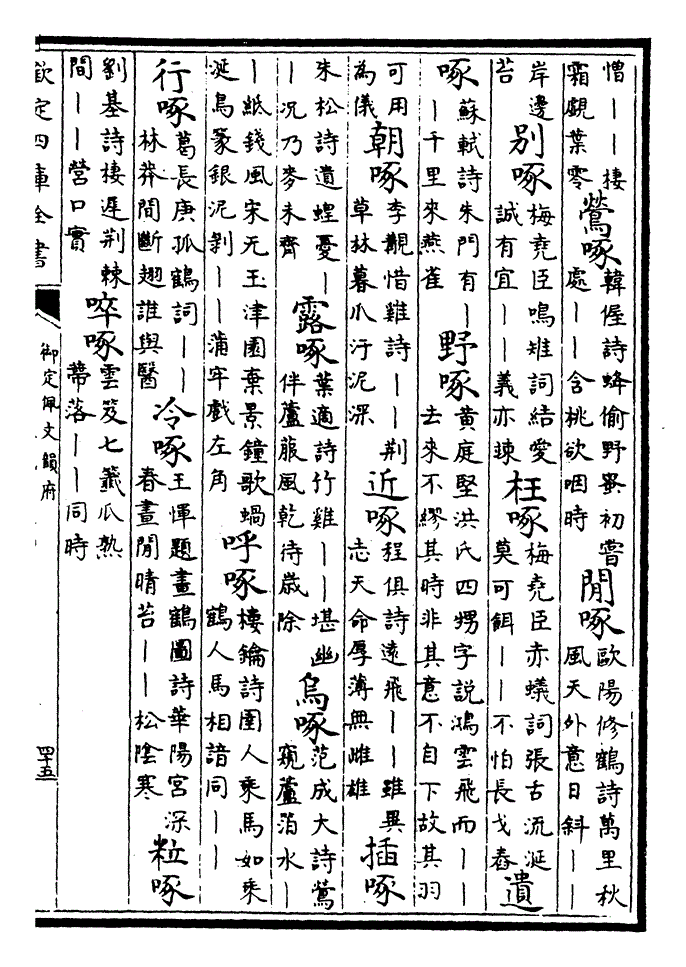 憎｜｜棲霜覷葉零 鶯啄 韓偓詩蜂偷野蜜初嘗處｜｜含桃欲咽時 閒啄 歐陽修鶴詩萬里秋風天外意日斜｜｜
岸邊苔 別啄 梅堯臣鳴雉詞結愛誠有宜｜｜義亦竦 枉啄 梅堯臣赤蟻詞張古流涎莫可餌｜｜不怕長戈舂 遺
啄 蘇軾詩朱門有｜｜千里來燕雀 野啄 黃庭堅洪氏四甥字說鴻雲飛而｜｜去來不繆其時非其意不自下故其羽
可用為儀 朝啄 李覯惜雞詩｜｜荆草林暮爪汙泥深 近啄 程俱詩遠飛｜｜雖異志天命厚薄無雌雄 插啄
朱松詩遺蝗憂｜｜況乃麥未齊 露啄 葉適詩竹雞｜｜堪幽伴蘆菔風乾待歲除 烏啄 范成大詩鶯窺蘆箔水｜
｜紙錢風宋无玉津園棄景鐘歌蝸涎鳥篆銀泥剝｜｜蒲牢戲左角 呼啄 樓鑰詩圉人乘馬如乘鶴人馬相諳同｜｜
行啄 葛長庚孤鶴詞｜｜林莽間斷翅誰與醫 冷啄 王惲題畫鶴圖詩華陽宮深春晝閒晴苔｜｜松陰寒 粒啄
劉基詩棲遲荆棘間｜｜營口實 啐啄 雲笈七籤瓜熟蒂落｜｜同時
欽定四庫全書
御定佩文韻府
四十五